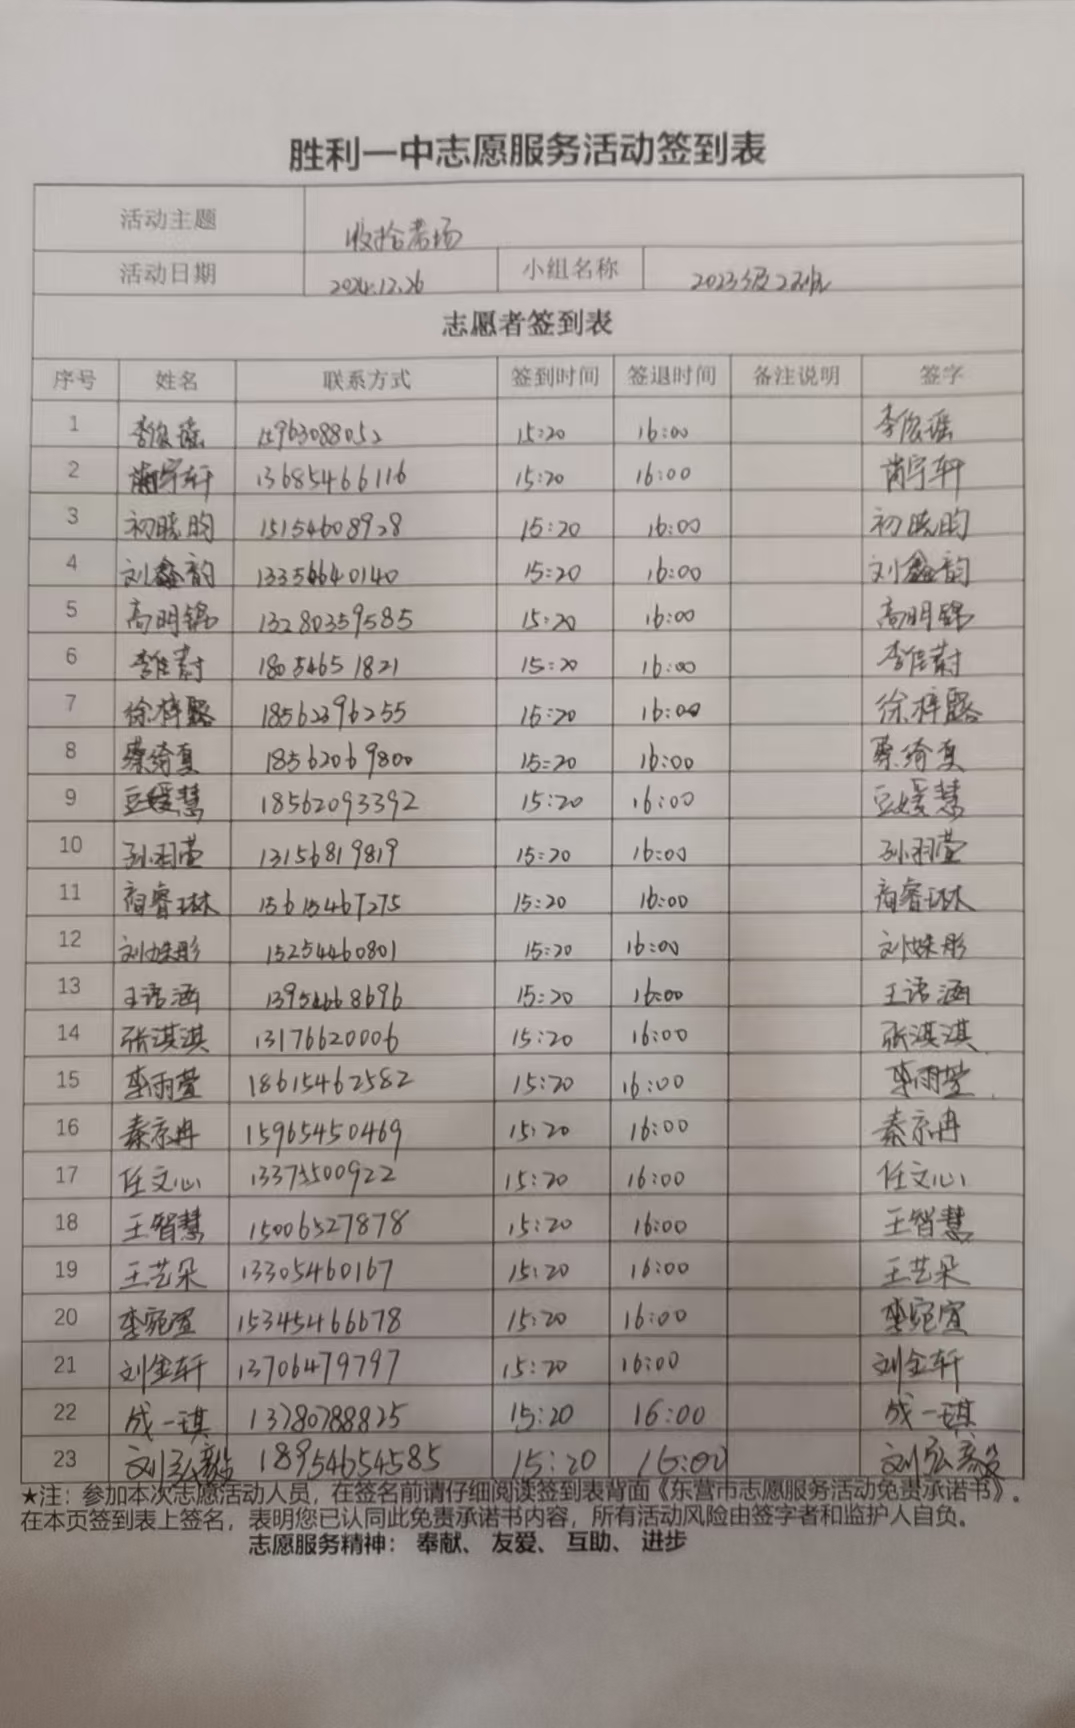 胜利一中志愿服务活动签到表
活动主题 收拾考场
活动日期 2024.12.26 小组名称 2023级22班
志愿者签到表
序号 姓名 联系方式 签到时间 签退时间 备注说明 签字
1 李俊瑶 15963088052 15:20 16:00 李俊瑶
2 蔺宇轩 13685466116 15:20 16:00 蔺宇轩
3 初晓昀 15154608928 15:20 16:00 初晓昀
4 刘鑫韵 13356640140 15:20 16:00 刘鑫韵
5 高明锦 13280359585 15:20 16:00 高明锦
6 李佳蔚 18054651821 15:20 16:00 李佳蔚
7 徐梓露 18562396255 15:20 16:00 徐梓露
8 蔡绮夏 18562069800 15:20 16:00 蔡绮夏
9 豆媛慧 18562093392 15:20 16:00 豆媛慧
10 孙羽萱 13156819819 15:20 16:00 孙羽萱
11 商睿琳 15615467275 15:20 16:00 商睿琳
12 刘姝彤 15254460801 15:20 16:00 刘姝彤
13 王语涵 13954668696 15:20 16:00 王语涵
14 张淇淇 13176620006 15:20 16:00 张淇淇
15 李雨萱 18615462582 15:20 16:00 李雨萱
16 秦京冉 15965450469 15:20 16:00 秦京冉
17 任文心 13373500922 15:20 16:00 任文心
18 王智慧 15006527878 15:20 16:00 王智慧
19 王艺朵 13305460167 15:20 16:00 王艺朵
20 李宛宣 15345466678 15:20 16:00 李宛宣
21 刘金轩 13706479797 15:20 16:00 刘金轩
22 成一琪 13780788825 15:20 16:00 成一琪
23 刘弘毅 18954654585 15:20 16:00 刘弘毅
★注：参加本次志愿活动人员，在签名前请仔细阅读签到表背面《东营市志愿服务活动免责承诺书》。
在本页签到表上签名，表明您已认同此免责承诺书内容，所有活动风险由签字者和监护人自负。
志愿服务精神： 奉献、 友爱、 互助、 进步